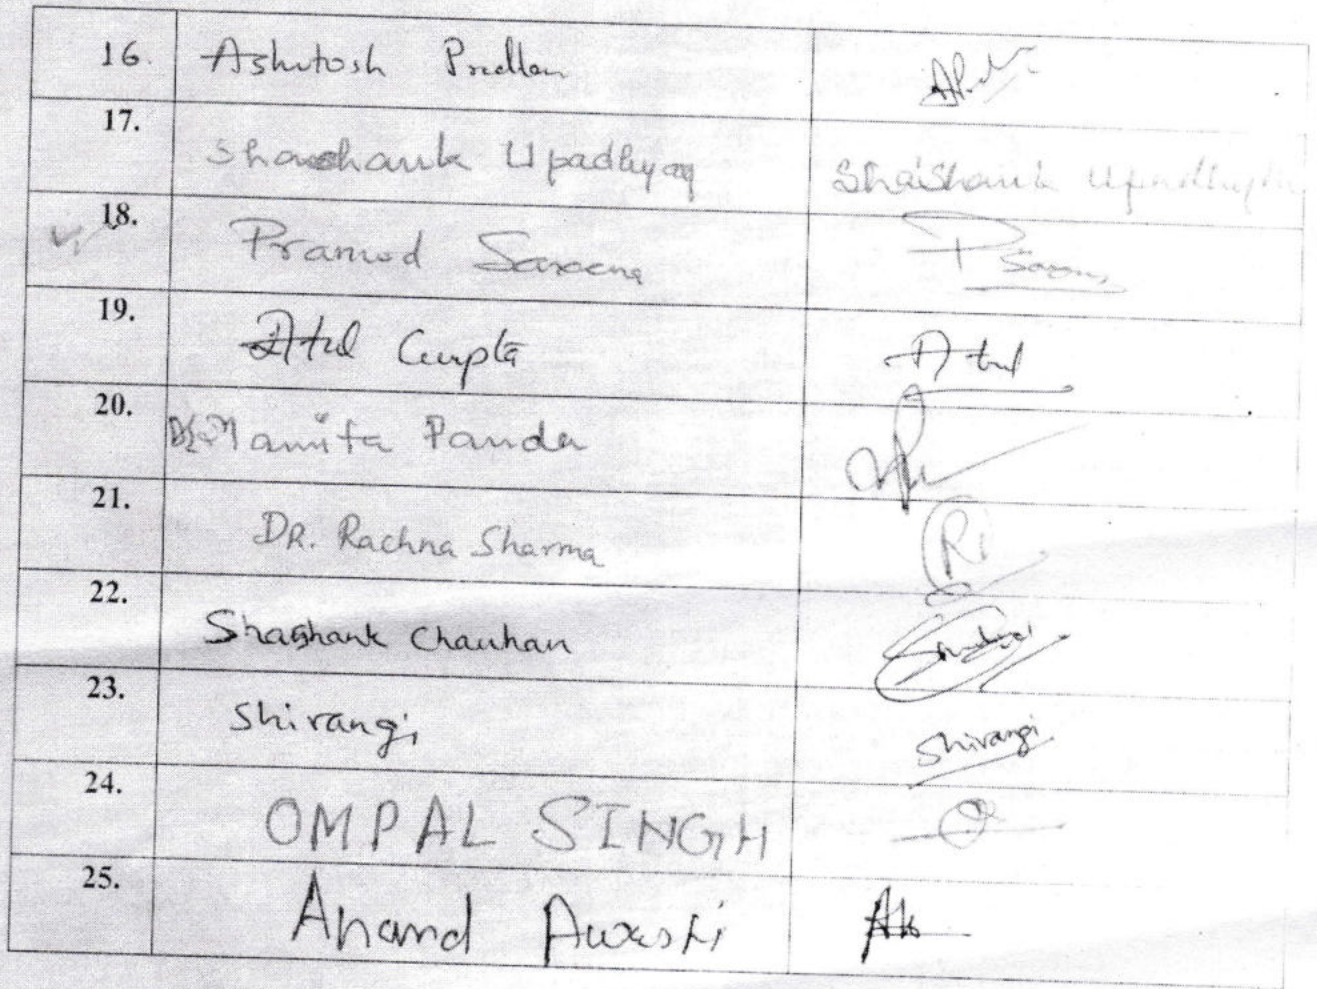 16. Ashutosh Pradhan
17. Shashank Upadhyay Shashank Upadhyay
18. Pramod Saxena P Saxena
19. Atul Gupta Atul
20. Dr. Mamita Panda
21. DR. Rachna Sharma R
22. Shashank Chauhan
23. Shirangi Shirangi
24. OMPAL SINGH
25. Anand Awasti